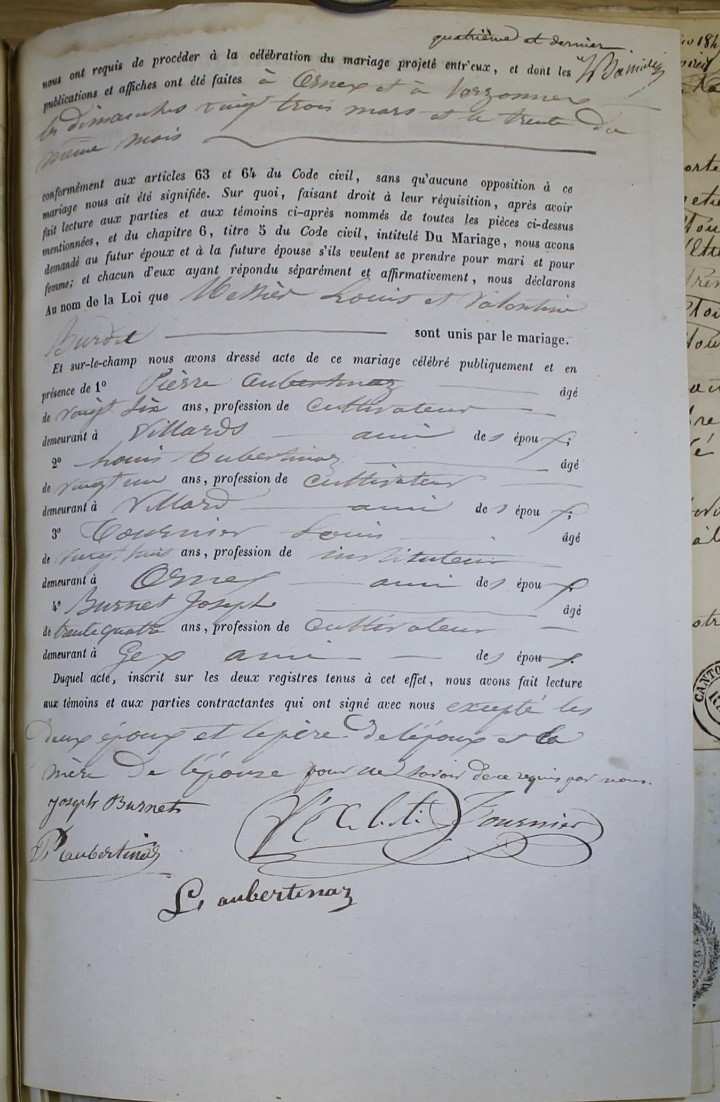 quatrième et dernier
nous ont requis de procéder à la célébration du mariage projeté entr'eux, et dont les
publications et affiches ont été faites à Ornex et à
les dimanches vingt trois mars et le trente du
même mois
conformément aux articles 63 et 64 du Code civil, sans qu'aucune opposition à ce
mariage nous ait été signifiée. Sur quoi, faisant droit à leur réquisition, après avoir
fait lecture aux parties et aux témoins ci-après nommés de toutes les pièces ci-dessus
mentionnées, et du chapitre 6, titre 5 du Code civil, intitulé Du Mariage, nous avons
demandé au futur époux et à la future épouse s'ils veulent se prendre pour mari et pour
femme; et chacun d'eux ayant répondu séparément et affirmativement, nous déclarons
Au nom de la Loi que Louis et Valentine
sont unis par le mariage.
Et sur-le-champ nous avons dressé acte de ce mariage célébré publiquement et en
présence de 1º Pierre aubertinaz âgé
de vingt six ans, profession de cultivateur
demeurant à Villards ami des époux;
2º Louis aubertinaz âgé
de vingt un ans, profession de cultivateur
demeurant à Villard ami des époux;
3º Fournier Louis âgé
de vingt huit ans, profession de instituteur
demeurant à Ornex ami des époux;
4º Burnet Joseph âgé
de trente quatre ans, profession de cultivateur
demeurant à Gex ami des époux.
Duquel acte, inscrit sur les deux registres tenus à cet effet, nous avons fait lecture
aux témoins et aux parties contractantes qui ont signé avec nous excepté les
deux époux et le père de l'époux et la
mère de l'épouse pour ne savoir de ce requis par nous.
Joseph Burnet
Fournier
P. aubertinaz
L. aubertinaz